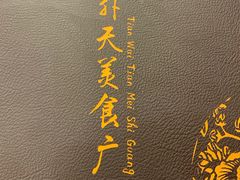 外天美食广
Tian Wai Tian Mei Shi Guang